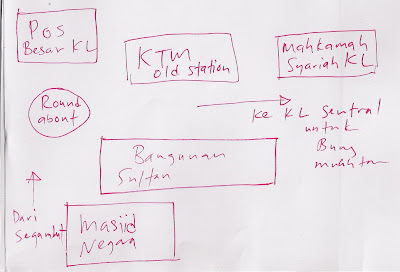 Pos
Besar KL
KTM
old station
Mahkamah
Syariah KL
Round
about
Ke KL Sentral
untuk
Bangunan
Sultan
Dari
Segambut
Masjid
Negara